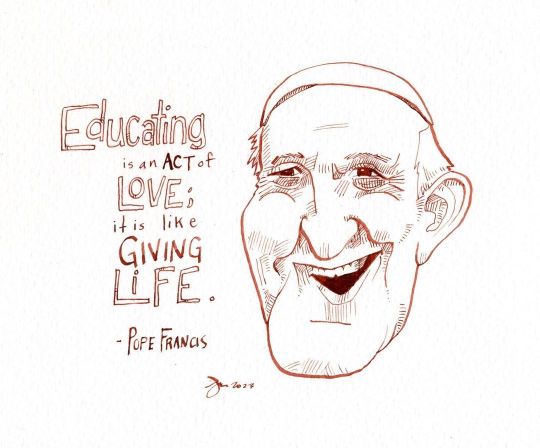 Educating
is an ACT of
LOVE;
it is like
GIVING
LiFE.
- POPE FRANCIS